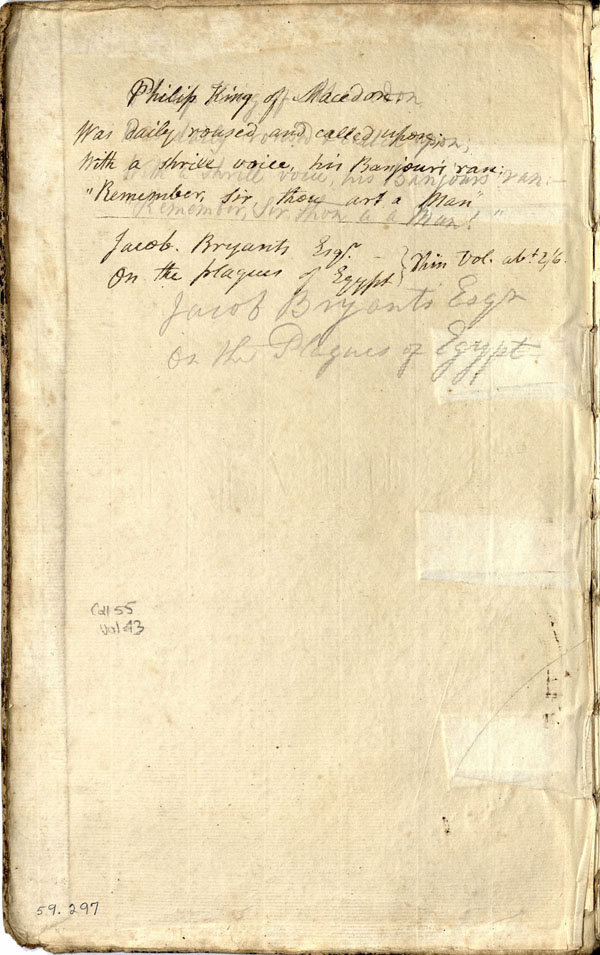 Philip King of Macedon
Was daily roused and called upon;
With a shrill voice, his Banjours ran:
"Remember, Sir, thou art a Man"
Remember, Sir thou a a Man!"
Jacob. Bryants Esqr. –
On the plagues of Egypt } Thin Vol. abt 2/6.
Jacob Bryants Esqr
On the Plagues of Egypt
Coll 55
Vol 43
59.297